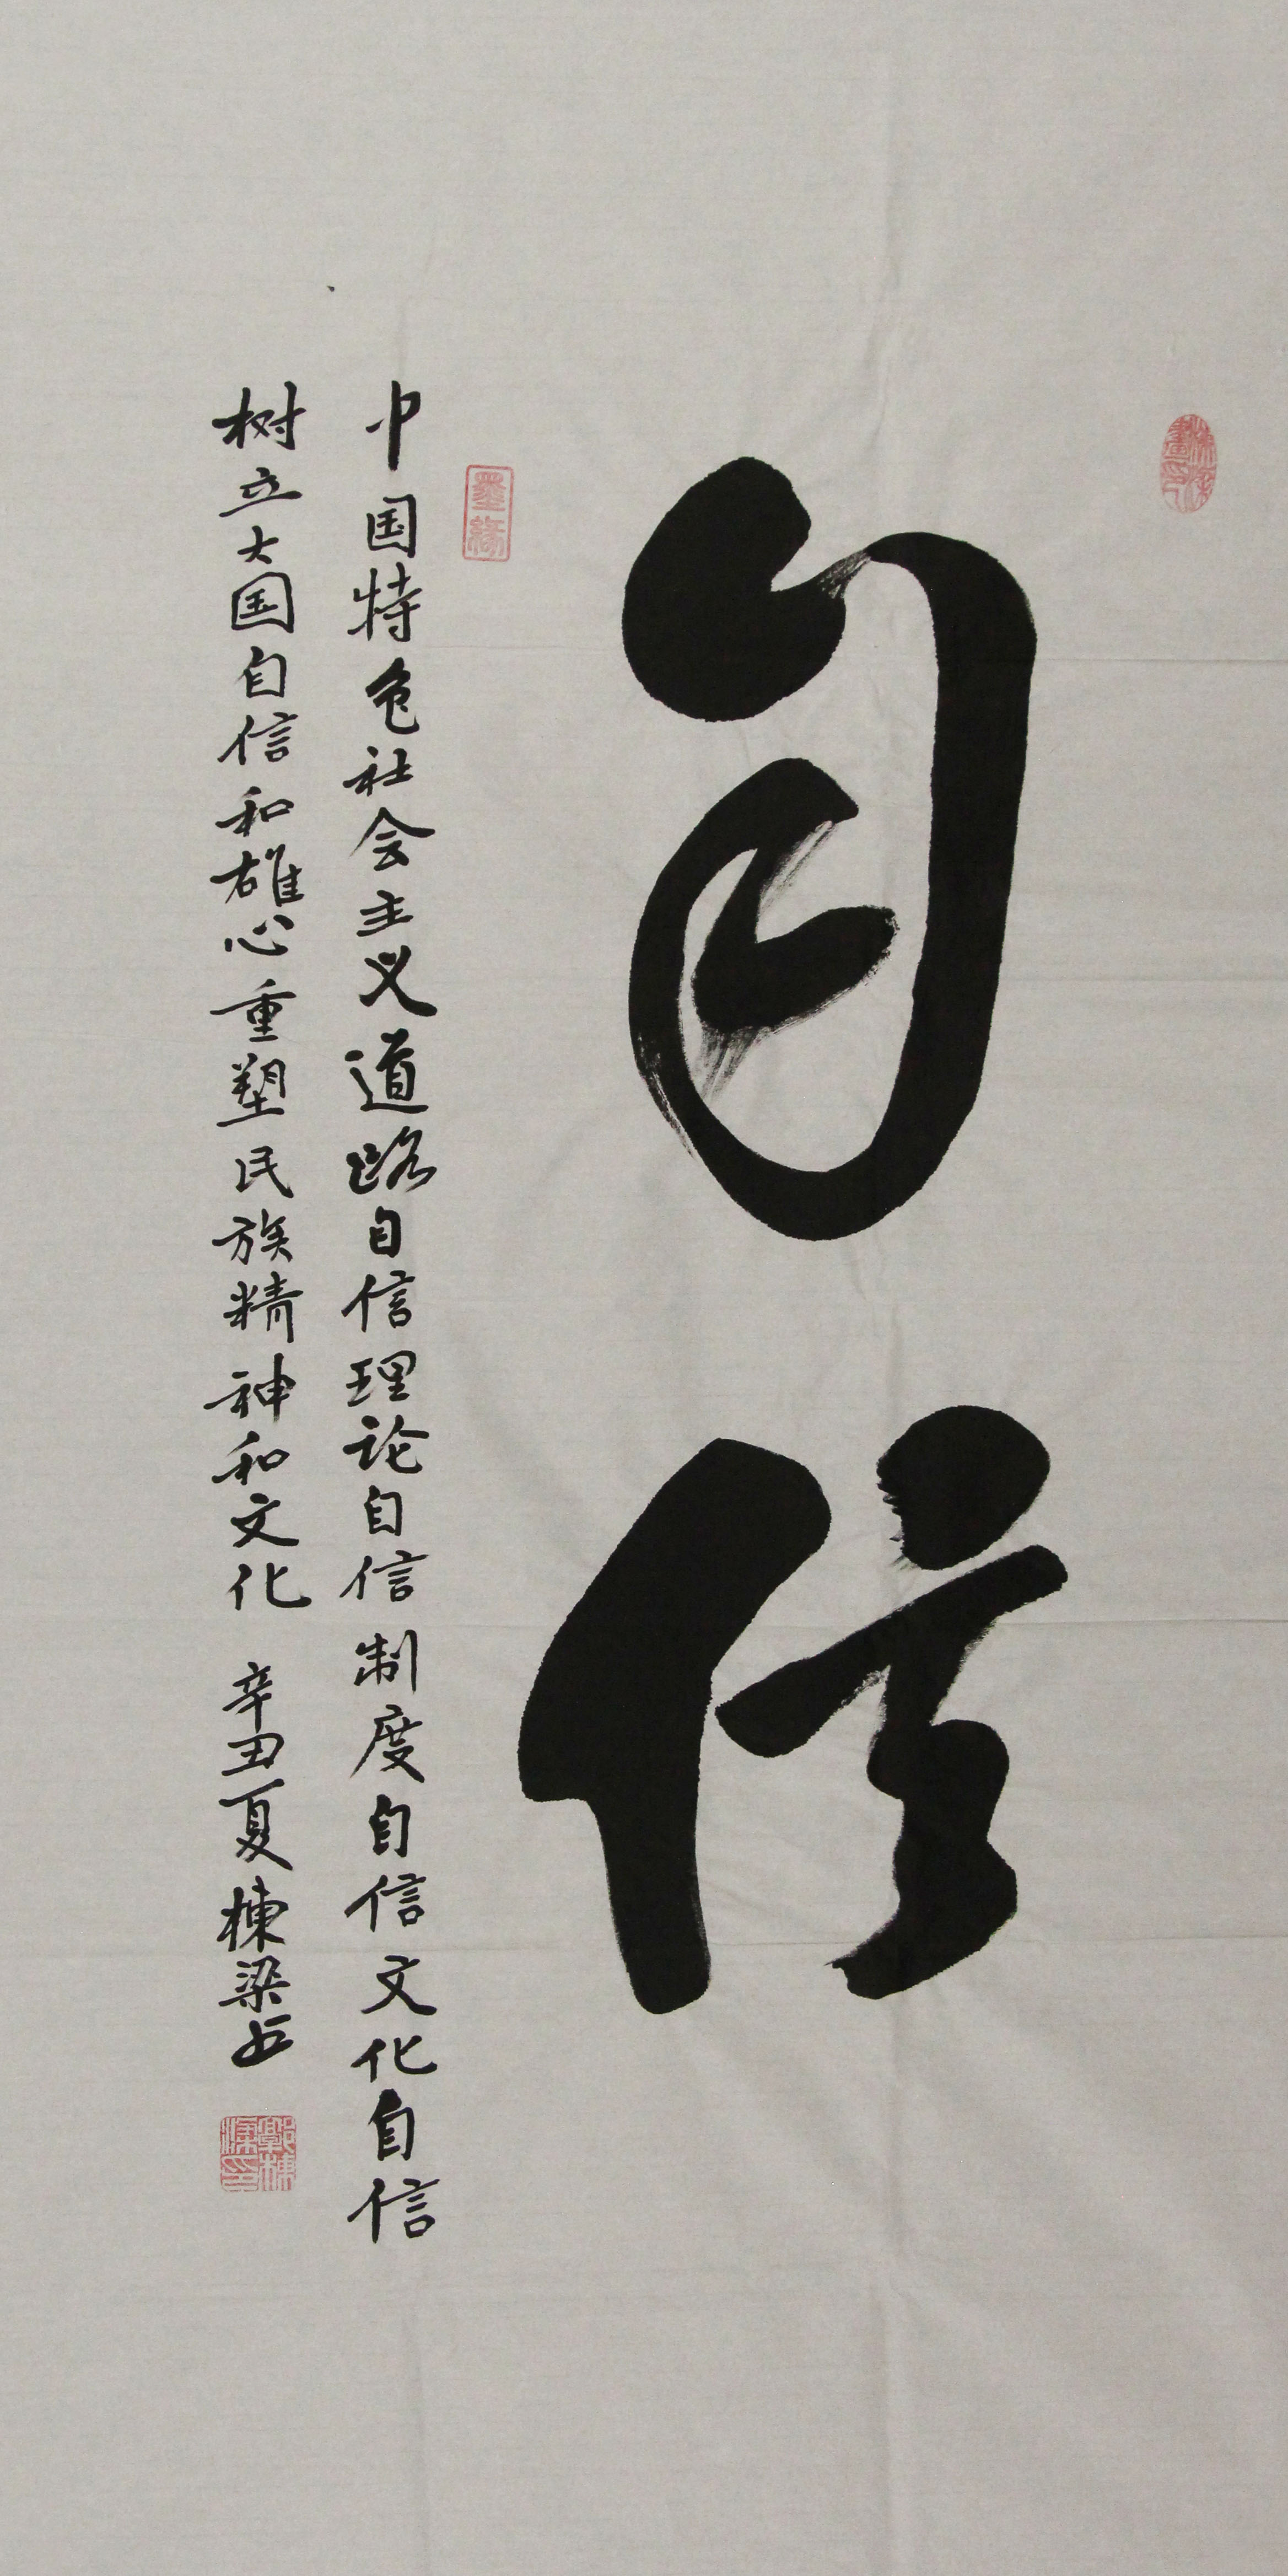 自信
墨缘
中国特色社会主义道路自信理论自信制度自信文化自信
树立大国自信和雄心重塑民族精神和文化 辛丑夏栋梁书